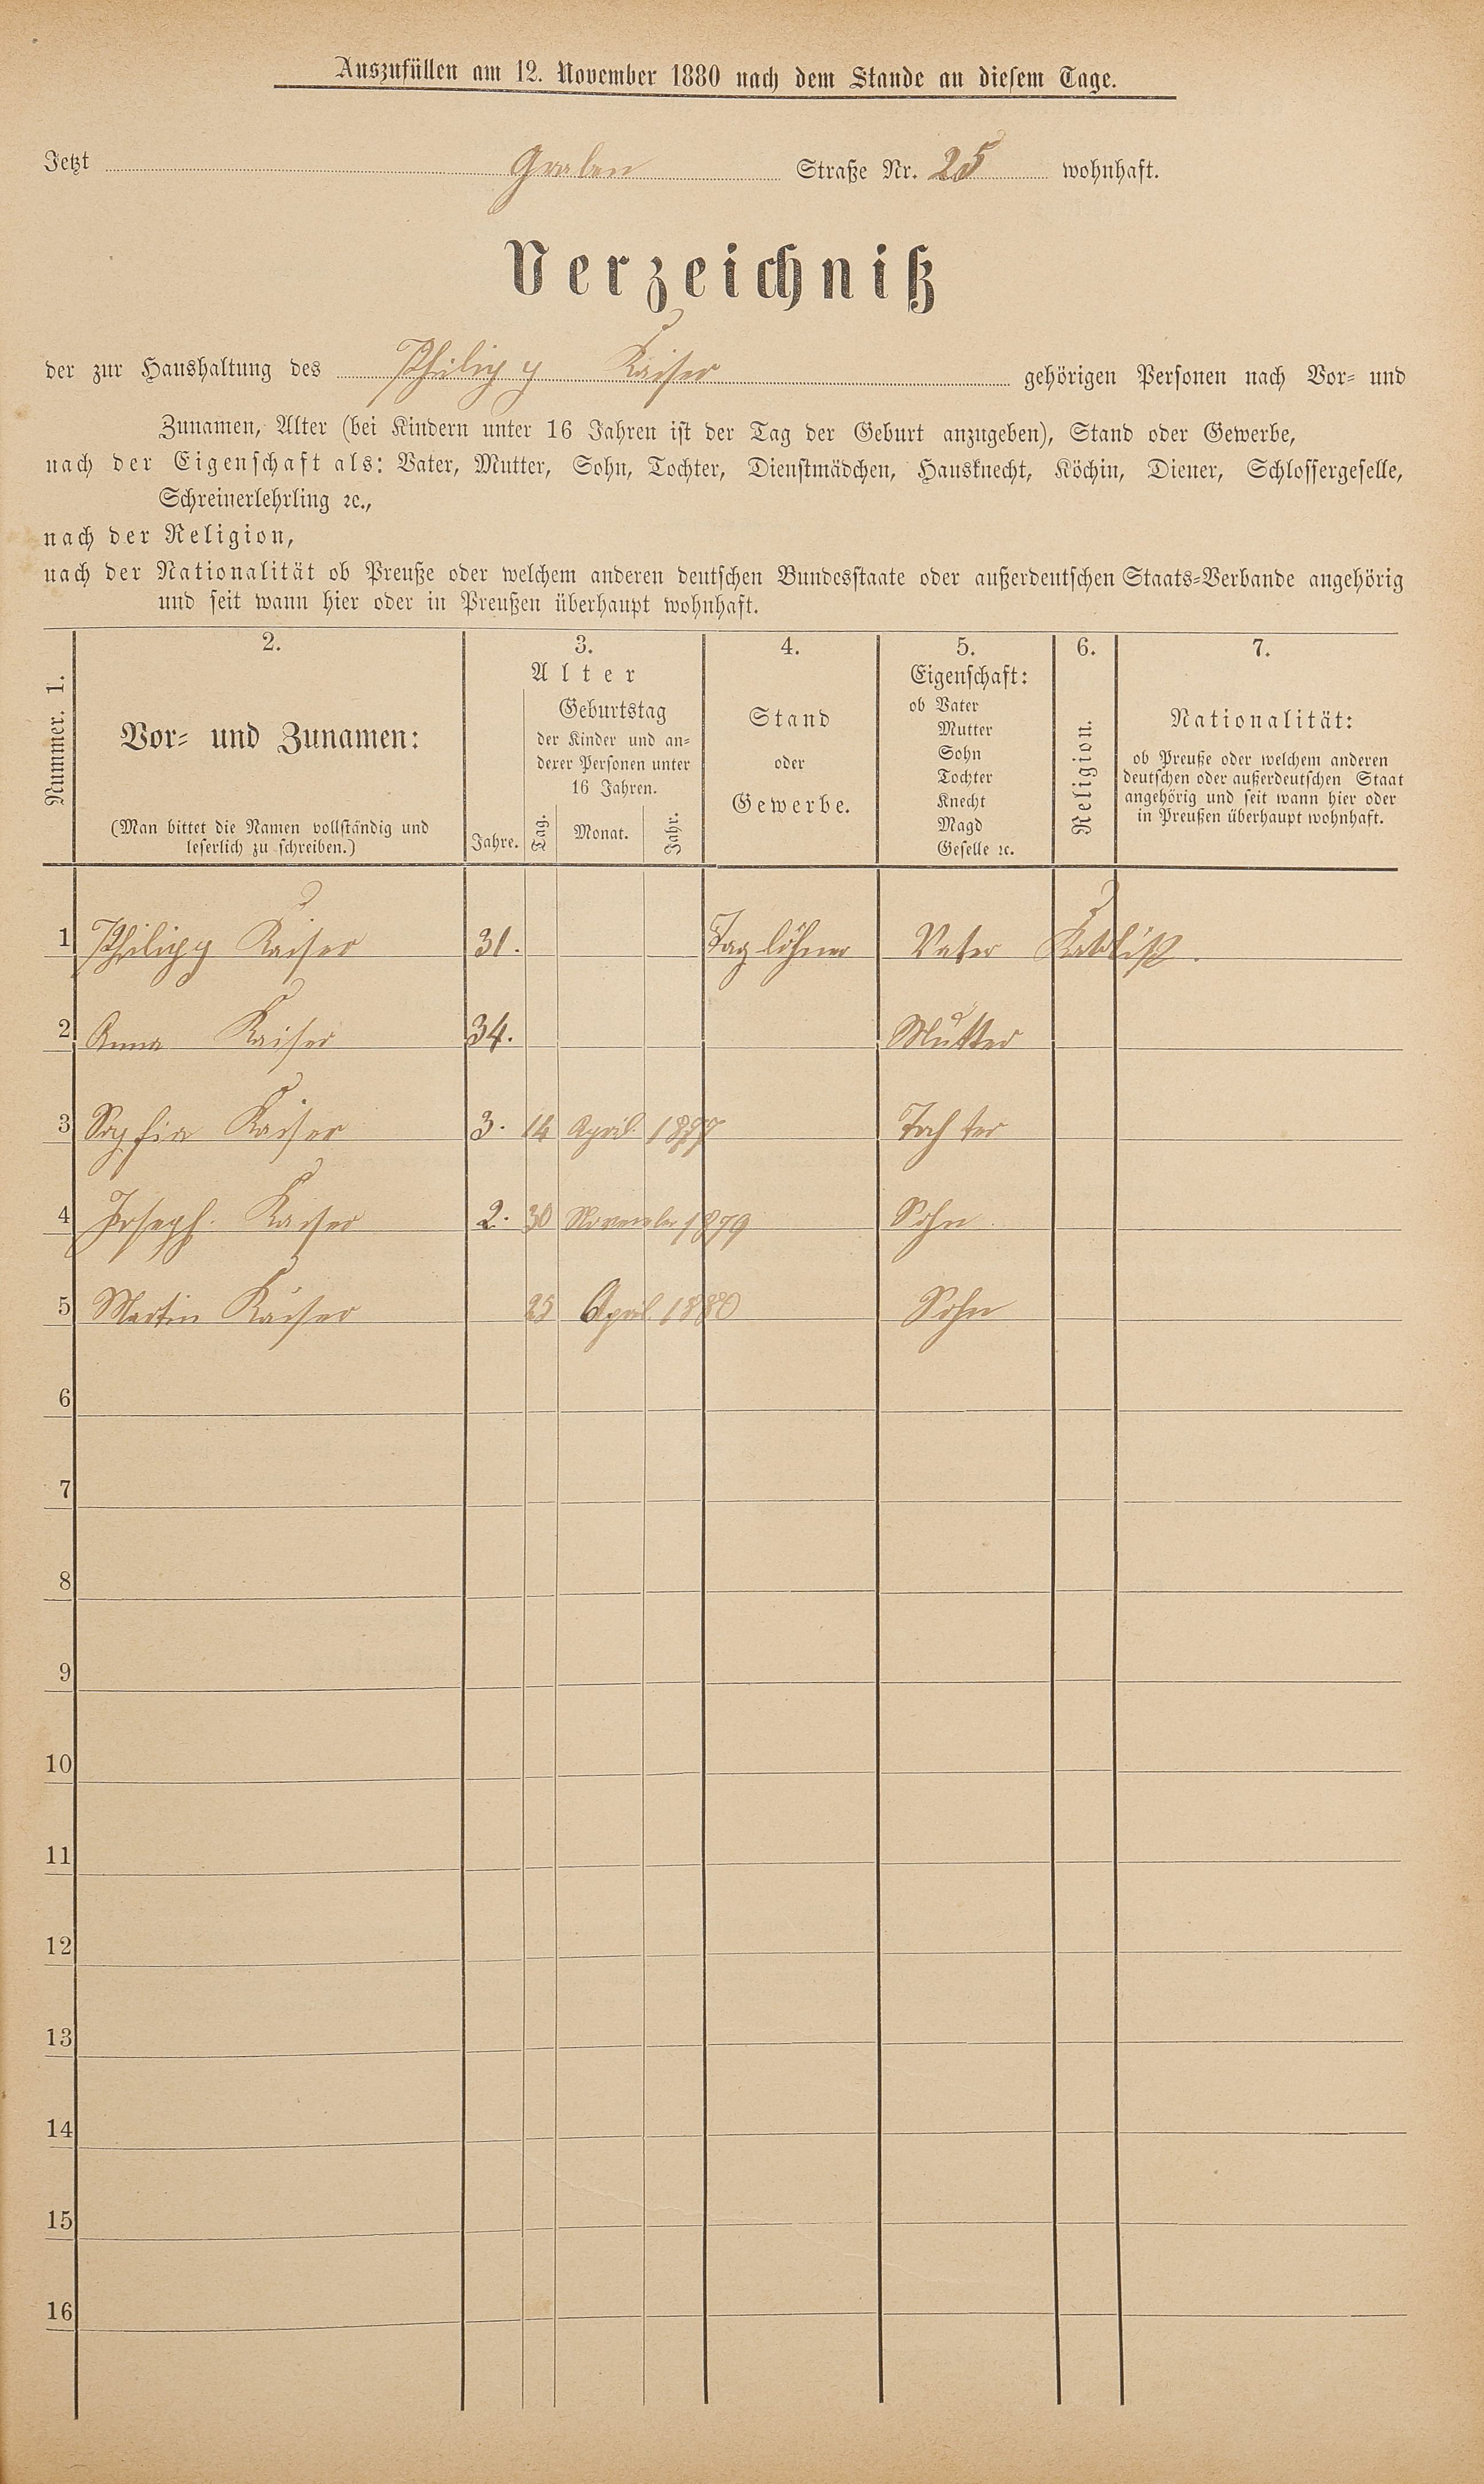 Auszufüllen am 12. November 1880 nach dem Stande an diesem Tage.
Jetzt Graben Straße Nr. 25 wohnhaft.
Verzeichniß
der zur Haushaltung des Philipp Kaiser gehörigen Personen nach Vor- und
Zunamen, Alter (bei Kindern unter 16 Jahren ist der Tag der Geburt anzugeben), Stand oder Gewerbe,
nach der Eigenschaft als: Vater, Mutter, Sohn, Tochter, Dienstmädchen, Hausknecht, Köchin, Diener, Schlossergeselle,
Schreinerlehrling ꝛc.,
nach der Religion,
nach der Nationalität ob Preuße oder welchem anderen deutschen Bundesstaate oder außerdeutschen Staats-Verbande angehörig
und seit wann hier oder in Preußen überhaupt wohnhaft.
Nummer. 1.
2.
Vor- und Zunamen:
(Man bittet die Namen vollständig und
leserlich zu schreiben.)
3.
Alter
Jahre.
Geburtstag
der Kinder und an-
derer Personen unter
16 Jahren.
Tag. Monat. Jahr.
4.
Stand
oder
Gewerbe.
5.
Eigenschaft:
ob Vater
Mutter
Sohn
Tochter
Knecht
Magd
Geselle ꝛc.
6.
Religion.
7.
Nationalität:
ob Preuße oder welchem anderen
deutschen oder außerdeutschen Staat
angehörig und seit wann hier oder
in Preußen überhaupt wohnhaft.
1 Philipp Kaiser 31. Taglöhner Vater
2 Anna Kaiser 34. Mutter
3 Sophia Kaiser 3. 14 April 1877 Tochter
4 Joseph Kaiser 2. 30 November 1879 Sohn
5 Martin Kaiser 25 April 1880 Sohn
6
7
8
9
10
11
12
13
14
15
16